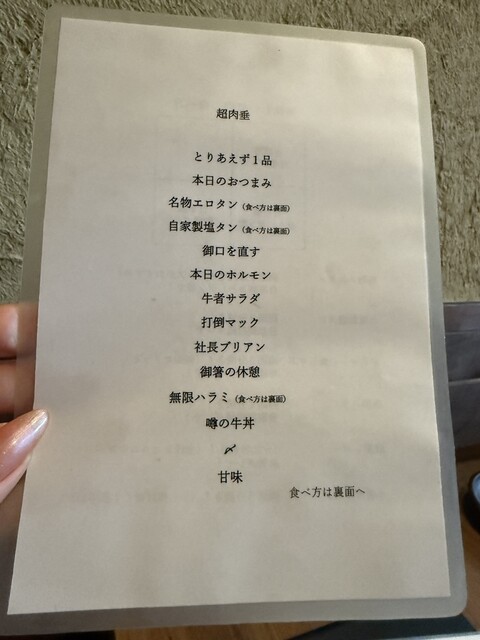 超肉垂
とりあえず1品
本日のおつまみ
名物エロタン(食べ方は裏面)
自家製塩タン(食べ方は裏面)
御口を直す
本日のホルモン
牛者サラダ
打倒マック
社長ブリアン
御箸の休憩
無限ハラミ(食べ方は裏面)
噂の牛丼
〆
甘味
食べ方は裏面へ